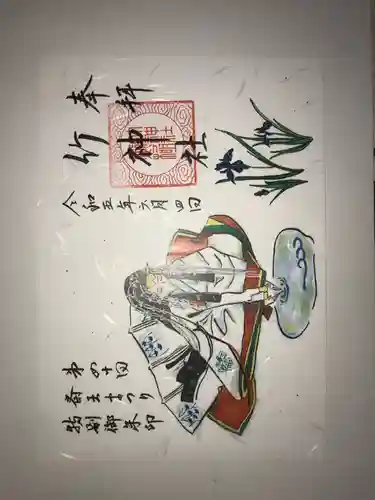 奉拝
竹神社
令和五年六月四日
第四十回
斎王まつり
特別御朱印